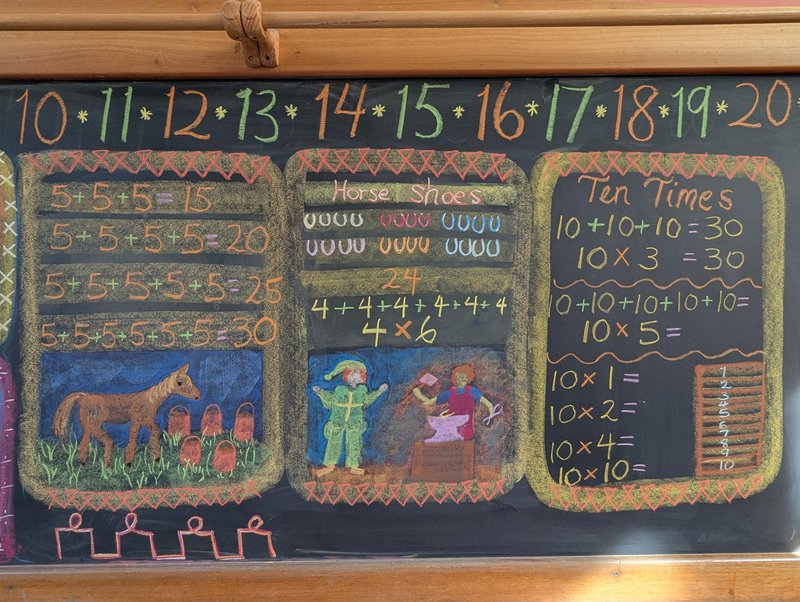 10 * 11 * 12 * 13 * 14 * 15 * 16 * 17 * 18 * 19 * 20 *
5+5+5=15
5+5+5+5=20
5+5+5+5+5=25
5+5+5+5+5+5=30
Horse Shoes
24
4+4+4+4+4+4
4×6
Ten Times
10+10+10=30
10×3=30
10+10+10+10+10=
10×5=
10×1=
10×2=
10×4=
10×10=
1
2
3
4
5
7
8
9
10